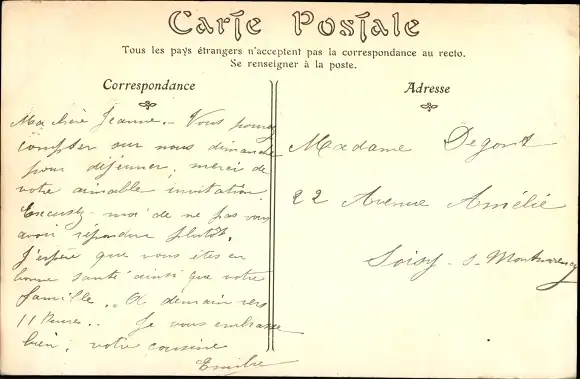 Carte Postale
Tous les pays étrangers n'acceptent pas la correspondance au recto.
Se renseigner à la poste.
Correspondance
Ma chère Jeanne. - Vous pouvez
compter sur nous dimanche
pour déjeuner, merci de
votre aimable invitation.
Excusez-moi de ne pas vous
avoir répondue plutôt.
J'espère que vous êtes en
bonne santé ainsi que votre
famille. A demain vers
11 heures.. Je vous embrasse
bien, votre cousine
Emilie
Adresse
Madame Degont
22 Avenue Amélie
Soisy-s-Montmorency